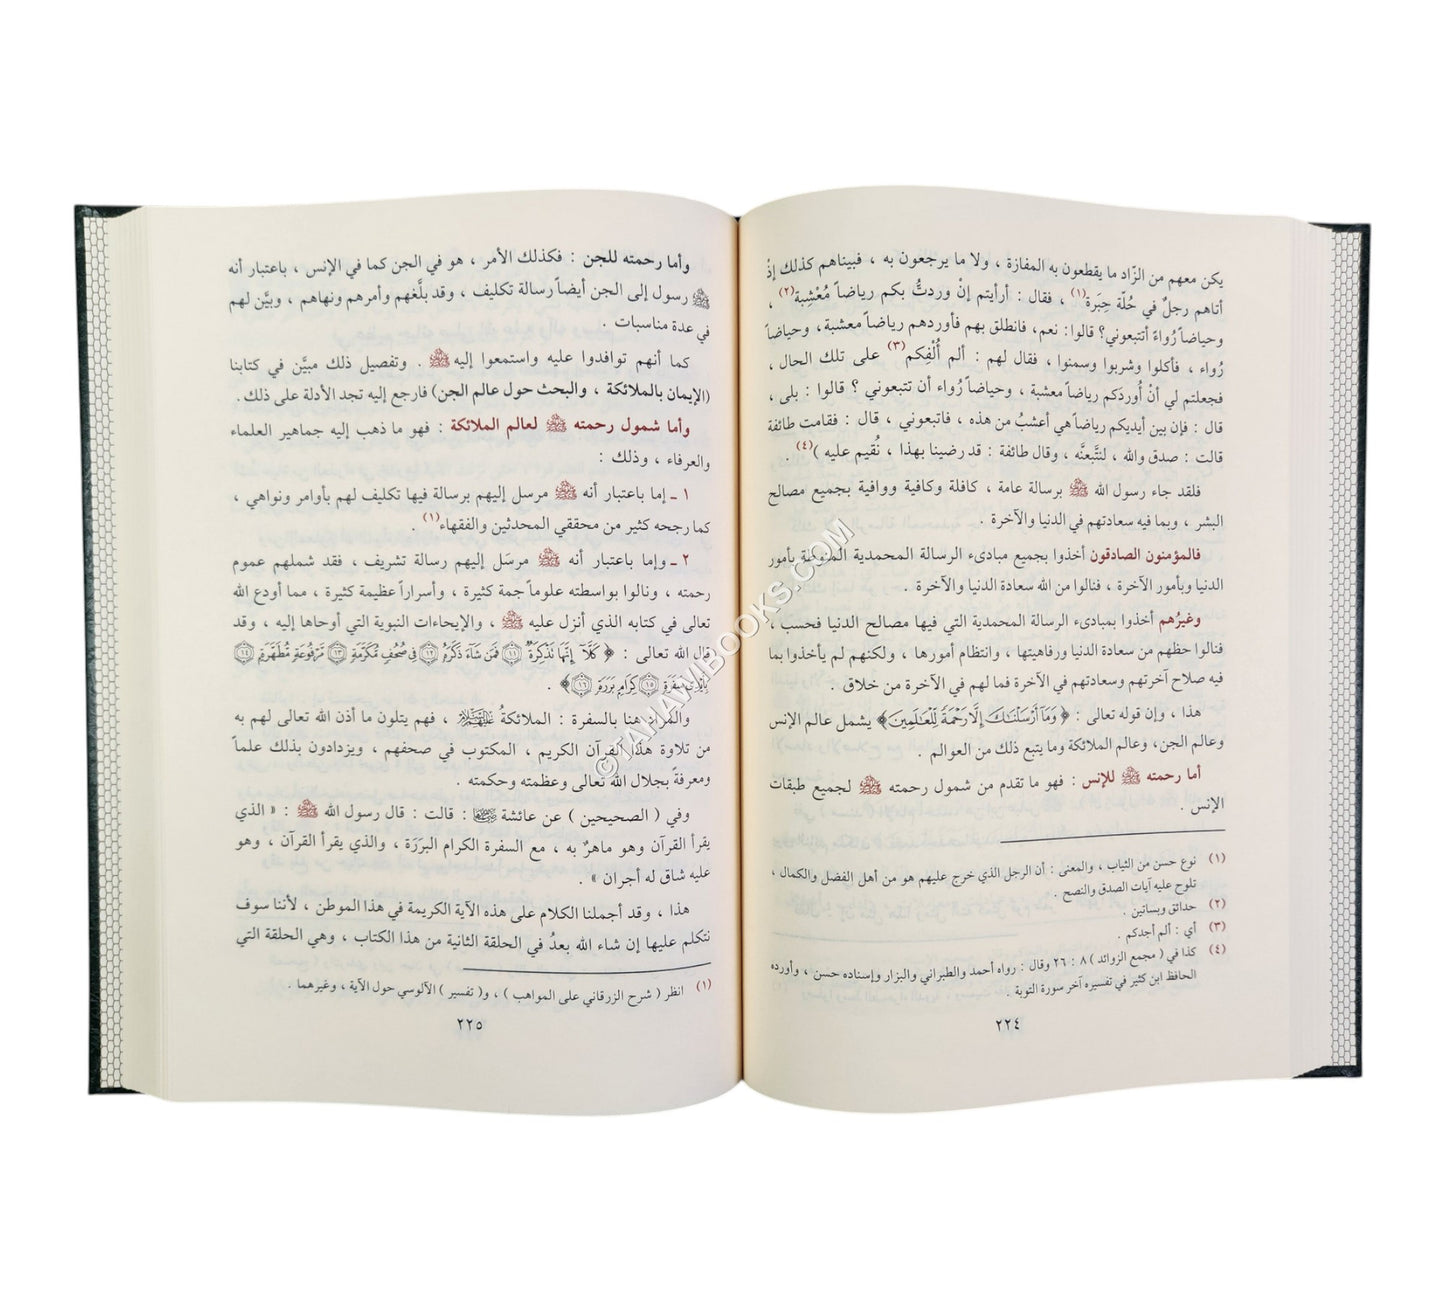 يكن معهم من الزّاد ما يقطعون به المفازة ، ولا ما يرجعون به ، فبيناهم كذلك إذْ
أتاهم رجلٌ في حُلّة حِبَرة(١) ، فقال : أرأيتم إنْ وردتُّ بكم رياضاً مُعْشِبة(٢) ،
وحياضاً رُواءً أتتبعوني؟ قالوا: نعم، فانطلق بهم فأوردهم رياضاً معشبة، وحياضاً
رُواء ، فأكلوا وشربوا وسمنوا ، فقال لهم : ألم أُلْفِكم(٣) على تلك الحال ،
فجعلتم لي أنْ أُوردَكم رياضاً معشبة ، وحياضاً رُواء أن تتبعوني ؟ قالوا : بلى ،
قال : فإن بين أيديكم رياضاً هي أعشبُ من هذه ، فاتبعوني ، قال : فقامت طائفة
قالت : صدق والله ، لنتَّبعنَّه ، وقال طائفة : قد رضينا بهذا ، نُقيم عليه )(٤) .
فلقد جاء رسول الله ﷺ برسالة عامة ، كافلة وكافية ووافية بجميع مصالح
البشر ، وبما فيه سعادتهم في الدنيا والآخرة .
فالمؤمنون الصادقون أخذوا بجميع مبادىء الرسالة المحمدية المنوطة بأمور
الدنيا وبأمور الآخرة ، فنالوا من الله سعادة الدنيا والآخرة .
وغيرُهم أخذوا بمبادىء الرسالة المحمدية التي فيها مصالح الدنيا فحسب ،
فنالوا حظهم من سعادة الدنيا ورفاهيتها ، وانتظام أمورها ، ولكنهم لم يأخذوا بما
فيه صلاح آخرتهم وسعادتهم في الآخرة فما لهم في الآخرة من خلاق .
هذا ، وإن قوله تعالى : ﴿ وَمَآ أَرْسَلْنَٰكَ إِلَّا رَحْمَةً لِّلْعَٰلَمِينَ ﴾ يشمل عالم الإنس
وعالم الجن، وعالم الملائكة وما يتبع ذلك من العوالم .
أما رحمته ﷺ للإنس : فهو ما تقدم من شمول رحمته ﷺ لجميع طبقات
الإنس .
(١) نوع حسن من الثياب ، والمعنى : أن الرجل الذي خرج عليهم هو من أهل الفضل والكمال ،
تلوح عليه آيات الصدق والنصح .
(٢) حدائق وبساتين .
(٣) أي : ألم أجدكم .
(٤) كذا في ( مجمع الزوائد ) ٨ : ٢٦ وقال : رواه أحمد والطبراني والبزار وإسناده حسن ، وأورده
الحافظ ابن كثير في تفسيره آخر سورة التوبة .
٢٢٤
وأما رحمته للجن : فكذلك الأمر ، هو في الجن كما في الإنس ، باعتبار أنه
ﷺ رسول إلى الجن أيضاً رسالة تكليف ، وقد بلَّغهم وأمرهم ونهاهم ، وبيَّن لهم
في عدة مناسبات .
كما أنهم توافدوا عليه واستمعوا إليه ﷺ . وتفصيل ذلك مبيَّن في كتابنا
(الإيمان بالملائكة ، والبحث حول عالم الجن) فارجع إليه تجد الأدلة على ذلك .
وأما شمول رحمته ﷺ لعالم الملائكة : فهو ما ذهب إليه جماهير العلماء
والعرفاء ، وذلك :
١ ـ إما باعتبار أنه ﷺ مرسل إليهم برسالة فيها تكليف لهم بأوامر ونواهي ،
كما رجحه كثير من محققي المحدثين والفقهاء(١) .
٢ ـ وإما باعتبار أنه ﷺ مرسَل إليهم رسالة تشريف ، فقد شملهم عموم
رحمته ، ونالوا بواسطته علوماً جمة كثيرة ، وأسراراً عظيمة كثيرة ، مما أودع الله
تعالى في كتابه الذي أنزل عليه ﷺ ، والإيحاءات النبوية التي أوحاها إليه ، وقد
قال الله تعالى : ﴿ كَلَّآ إِنَّهَا تَذْكِرَةٌ ۝١١ فَمَن شَآءَ ذَكَرَهُۥ ۝١٢ فِى صُحُفٍ مُّكَرَّمَةٍ ۝١٣ مَّرْفُوعَةٍ مُّطَهَّرَةٍۭ ۝١٤
بِأَيْدِى سَفَرَةٍ ۝١٥ كِرَامٍۭ بَرَرَةٍ ۝١٦ ﴾ .
والمراد هنا بالسفرة : الملائكةُ عليهم السلام ، فهم يتلون ما أذن الله تعالى لهم به
من تلاوة هذا القرآن الكريم ، المكتوب في صحفهم ، ويزدادون بذلك علماً
ومعرفةً بجلال الله تعالى وعظمته وحكمته .
وفي ( الصحيحين ) عن عائشة رضي الله عنها : قالت : قال رسول الله ﷺ : « الذي
يقرأ القرآن وهو ماهرٌ به ، مع السفرة الكرام البرَرَة ، والذي يقرأ القرآن ، وهو
عليه شاق له أجران » .
هذا ، وقد أجملنا الكلام على هذه الآية الكريمة في هذا الموطن ، لأننا سوف
نتكلم عليها إن شاء الله بعدُ في الحلقة الثانية من هذا الكتاب ، وهي الحلقة التي
(١) انظر ( شرح الزرقاني على المواهب ) ، و( تفسير ) الآلوسي حول الآية ، وغيرهما .
٢٢٥
©TAHAWIBOOKS.COM